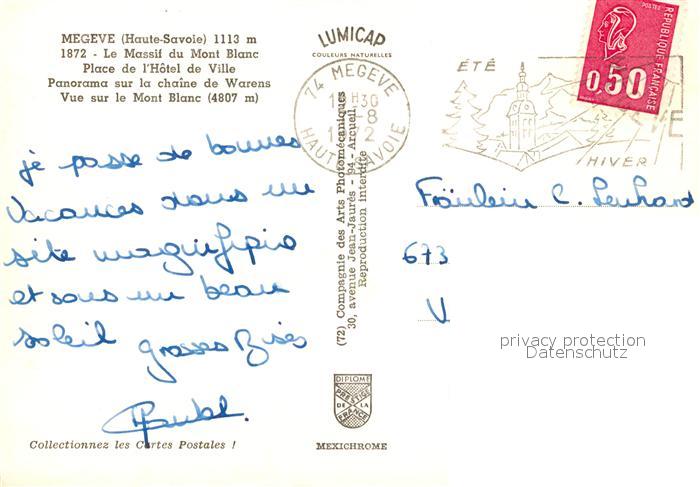 MEGEVE (Haute-Savoie) 1113 m
1872 - Le Massif du Mont Blanc
Place de l'Hôtel de Ville
Panorama sur la chaîne de Warens
Vue sur le Mont Blanc (4807 m)
LUMICAP
COULEURS NATURELLES
74 MEGEVE
HAUTE SAVOIE
ÉTÉ
HIVER
POSTES
RÉPUBLIQUE FRANÇAISE
0,50
je passe de bonnes
vacances dans un
site magnifique
et sous un beau
soleil grosses Bises
(72) Compagnie des Arts Photomécaniques
30, avenue Jean-Jaurès - 94 - Arcueil
Reproduction interdite
Fräulein C. Lenhard
673
V
privacy protection
Datenschutz
DIPLOME
PRESTIGE
DE LA
FRANCE
Collectionnez les Cartes Postales !
MEXICHROME